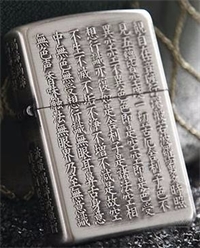 觀自在菩薩行深般若波羅蜜多時照
見五蘊皆空度一切苦厄舍利子色不
異空空不異色色即是空空即是色受
想行識亦復如是舍利子是諸法空相
不生不滅不垢不淨不增不減是故空
中無色無受想行識無眼耳鼻舌身意
無色聲香味觸法無眼界乃至無意識